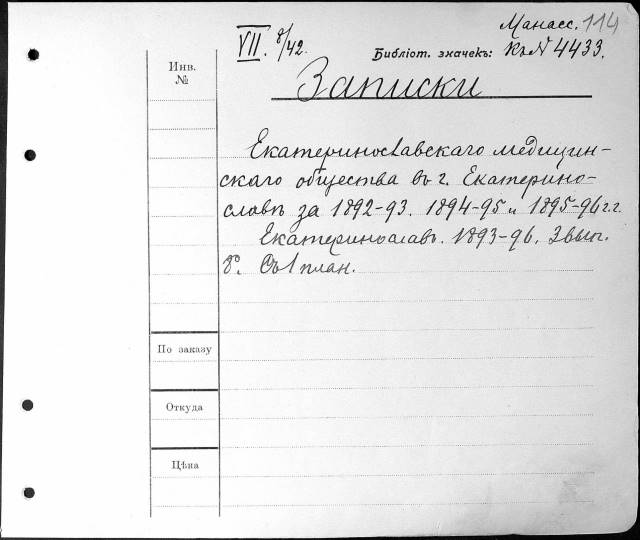 Манасс. 114
VII. 8/42.
Библіот. значекъ: К. № 4433.
Инв.
№
Записки
Екатеринославскаго медицин-
скаго общества въ г. Екатерино-
славѣ за 1892-93. 1894-95 и 1895-96 г.г.
Екатеринославъ. 1893-96. 3 вып.
8°. Съ 1 план.
По заказу
Откуда
Цѣна